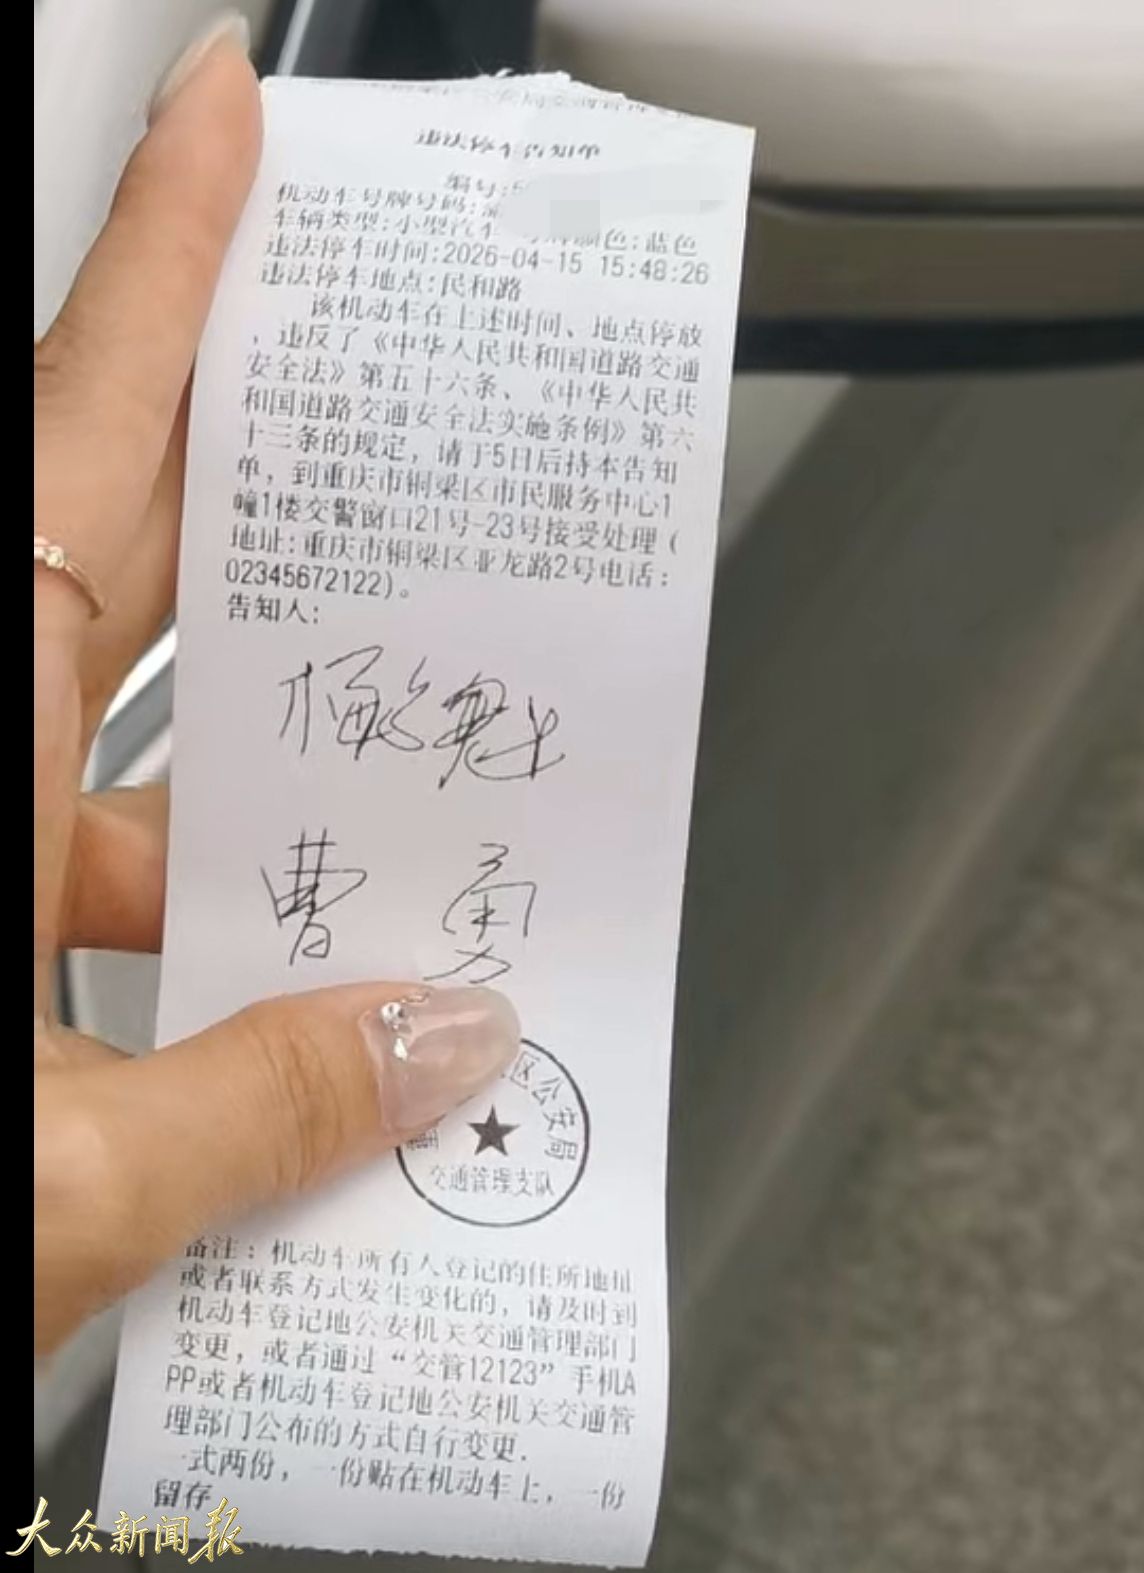 违法停车告知单
编号:5
机动车号牌号码:渝
车辆类型:小型汽车 号牌颜色:蓝色
违法停车时间:2026-04-15 15:48:26
违法停车地点:民和路
该机动车在上述时间、地点停放
，违反了《中华人民共和国道路交通
安全法》第五十六条、《中华人民共
和国道路交通安全法实施条例》第六
十三条的规定，请于5日后持本告知
单，到重庆市铜梁区市民服务中心1
幢1楼交警窗口21号-23号接受处理(
地址:重庆市铜梁区亚龙路2号电话:
02345672122)。
告知人:
魁
曹勇
区公安局
交通管理支队
备注：机动车所有人登记的住所地址
或者联系方式发生变化的，请及时到
机动车登记地公安机关交通管理部门
变更，或者通过“交管12123”手机A
PP或者机动车登记地公安机关交通管
理部门公布的方式自行变更.
一式两份，一份贴在机动车上，一份
留存
大众新闻报